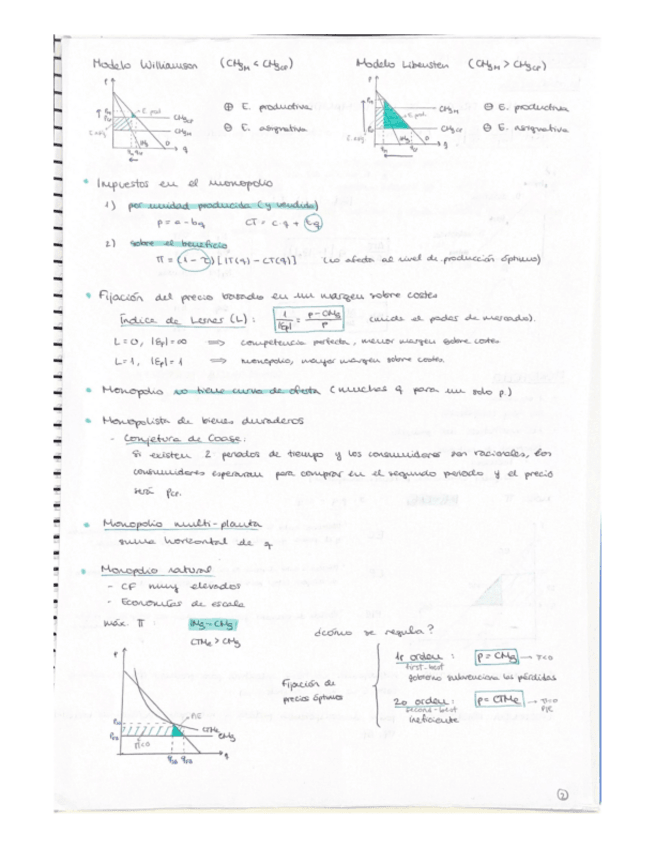 Modelo Williamson (CMgM < CMgCP)
Modelo Libensten (CMgM > CMgCP)
⊕ E. productiva
⊖ E. asignativa
⊖ E. productiva
⊖ E. asignativa
• Impuestos en el monopolio
1) por unidad producida (y vendida)
p = a - bq CT = c·q + tq
2) sobre el beneficio
π = (1 - τ) [IT(q) - CT(q)] (no afecta al nivel de producción óptimo)
• Fijación del precio basado en un margen sobre costes
Índice de Lerner (L): 1/|Ep| = p - CMg/p (mide el poder de mercado).
L=0, |Ep|=∞ ⇒ competencia perfecta, menor margen sobre costes
L=1, |Ep|=1 ⇒ monopolio, mayor margen sobre costes.
• Monopolio no tiene curva de oferta (muchas q para un solo p.)
• Monopolista de bienes duraderos
- Conjetura de Coase:
Si existen 2 periodos de tiempo y los consumidores son racionales, los
consumidores esperaran para comprar en el segundo periodo y el precio
será PCP.
• Monopolio multi-planta
suma horizontal de q
• Monopolio natural
- CF muy elevados
- Economías de escala
máx. π: IMg = CMg
CTMe > CMg
¿cómo se regula?
Fijación de
precios óptimos
1r orden: p = CMg → π<0
first-best
gobierno subvenciona las pérdidas
2o orden: p = CTMe → π=0
second-best PIE
ineficiente
p
PIE
CTMe
CMg
π<0
qSB qFB
q
2